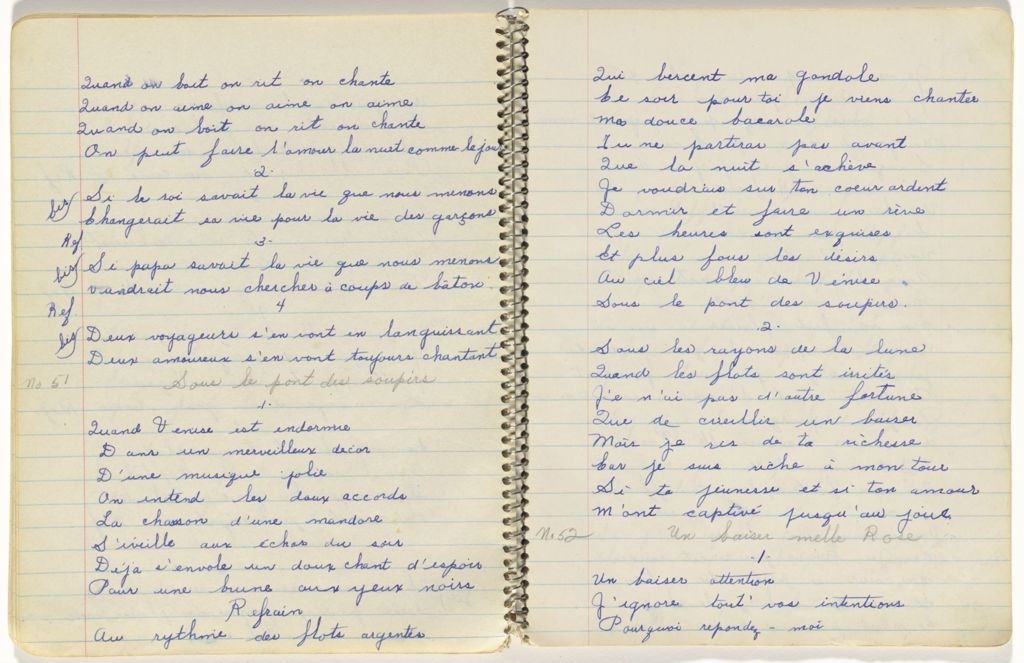 Quand on boit on rit on chante
Quand on aime on aime on aime
Quand on boit on rit on chante
On peut faire l'amour la nuit comme le jour
2.
bis Si le roi savait la vie que nous menons
Changerait sa vie pour la vie des garçons
Ref 3.
bis Si papa savait la vie que nous menons
viendrait nous chercher à coups de bâton.
Ref. 4
bis Deux voyageurs s'en vont en languissant
Deux amoureux s'en vont toujours chantant
No 51 Sous le pont des soupirs
.1.
Quand Venise est endormie
Dans un merveilleux décor
D'une musique jolie
On entend les doux accords
La chanson d'une mandore
S'éveille aux échos du soir
Déjà s'envole un doux chant d'espoir
Pour une brune aux yeux noirs
Refrain
Au rythme des flots argentés
Qui bercent ma gondole
Ce soir pour toi je viens chanter
Ma douce bacarole
Tu ne partiras pas avant
Que la nuit s'achève
Je voudrais sur ton coeur ardent
Dormir et faire un rêve
Les heures sont exquises
Et plus fous les désirs
Au ciel bleu de Venise.
Sous le pont des soupirs.
.2.
Sous les rayons de la lune
Quand les flots sont irrités
Je n'ai pas d'autre fortune
Que de cueillir un baiser
Mais je ris de ta richesse
Car je suis riche à mon tour
Si ta jeunesse et si ton amour
M'ont captivé jusqu'au jour
No. 52 Un baiser melle Rose
.1.
Un baiser attention
J'ignore tout' vos intentions
Pourquoi repondez-moi